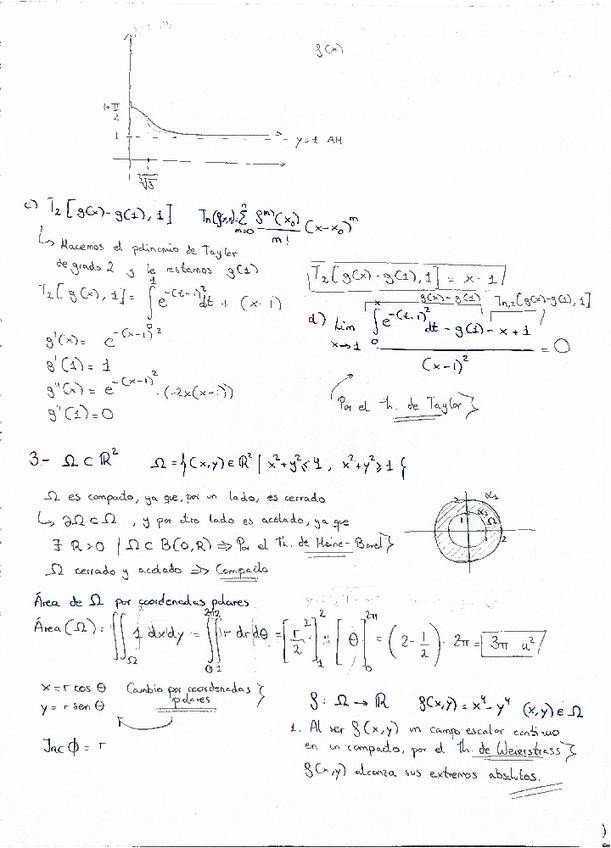 f(x)
1+π/2
1
y=1 AH
∜3
c) T₂[g(x)-g(1),1] Tn(f,x₀)=∑ⁿₘ₌₀ fᵐ⁾(x₀)/m! (x-x₀)ᵐ
↳ Hacemos el polinomio de Taylor
de grado 2 y le restamos g(1)
T₂[g(x),1] = ∫₀¹ e^-(t-1)² dt + (x-1)
g'(x) = e^-(x-1)²
g'(1) = 1
g''(x) = e^-(x-1)² · (-2x(x-1))
g''(1) = 0
T₂[g(x)-g(1),1] = x-1
g(x)-g(1) Tn,2[g(x)-g(1),1]
d) Lim x→1 (∫₀ˣ e^-(t-1)² dt - g(1) - x + 1)/(x-1)² = 0
Por el th. de Taylor}
3.- Ω⊂ℝ² Ω={(x,y)∈ℝ² | x²+y²≤4, x²+y²≥1}
Ω es compacto, ya que, por un lado, es cerrado
↳ ∂Ω⊂Ω, y por otro lado es acotado, ya que
∃ R>0 | Ω⊂B(0,R) => Por el Th. de Heine-Borel}
Ω cerrado y acotado => Compacto
2 1 1 2 Ω
Área de Ω por coordenadas polares
Área(Ω): ∬_Ω 1 dxdy = ∫₀^2π ∫₁² r dr dθ = [r²/2]₁² · [θ]₀^2π = (2-1/2) · 2π = 3π u²
x = r cos θ Cambio por coordenadas
y = r sen θ polares}
Jac ϕ = r
f: Ω → ℝ f(x,y) = x⁴-y⁴ (x,y)∈Ω
1. Al ser f(x,y) un campo escalar continuo
en un compacto, por el Th. de Weierstrass}
f(x,y) alcanza sus extremos absolutos.